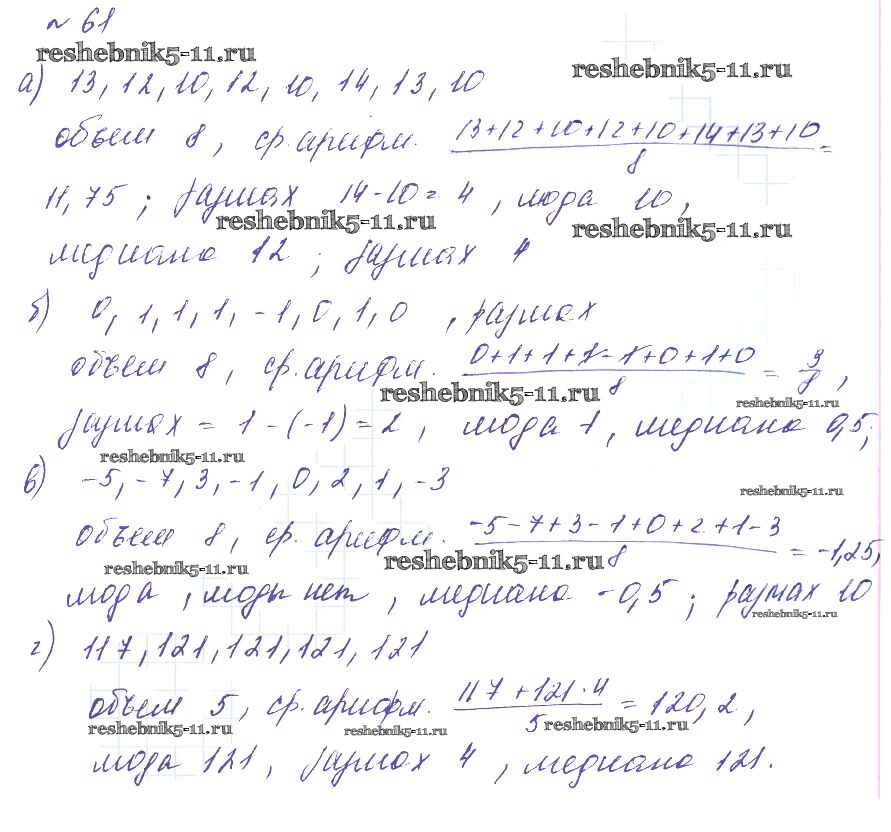 № 61
reshebnik5-11.ru
reshebnik5-11.ru
а) 13, 12, 10, 12, 10, 14, 13, 10
объем 8, ср. арифм. 13+12+10+12+10+14+13+10 / 8 =
11,75; размах 14-10=4, мода 10,
reshebnik5-11.ru
reshebnik5-11.ru
медиана 12; размах 4
б) 0, 1, 1, 1, -1, 0, 1, 0, размах
объем 8, ср. арифм. 0+1+1+1-1+0+1+0 / 8 = 3/8,
reshebnik5-11.ru
reshebnik5-11.ru
размах = 1-(-1)=2, мода 1, медиана 0,5;
reshebnik5-11.ru
в) -5, -7, 3, -1, 0, 2, 1, -3
reshebnik5-11.ru
объем 8, ср. арифм. -5-7+3-1+0+2+1-3 / 8 = -1,25,
reshebnik5-11.ru
reshebnik5-11.ru
мода, моды нет, медиана -0,5; размах 10
reshebnik5-11.ru
г) 117, 121, 121, 121, 121
объем 5, ср. арифм. 117+121·4 / 5 = 120,2,
reshebnik5-11.ru
reshebnik5-11.ru
reshebnik5-11.ru
мода 121, размах 4, медиана 121.